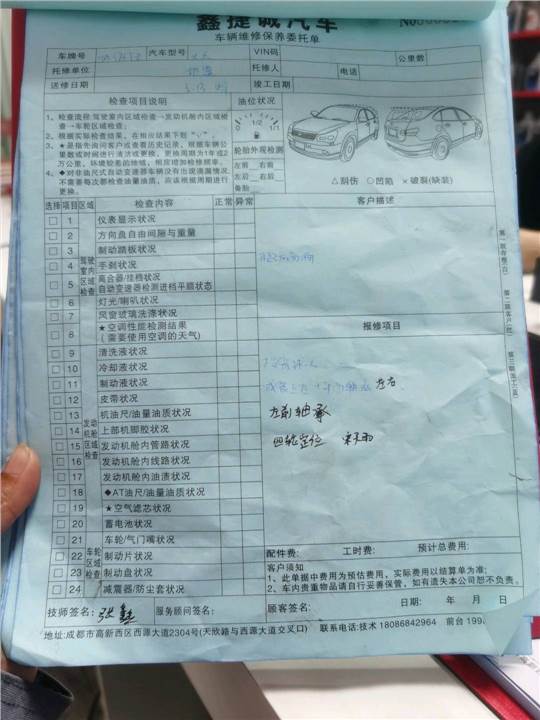 鑫捷诚汽车
车辆维修保养委托单
车牌号 汽车型号 VIN码 公里数
托修单位 托修人 电话
送修日期 竣工日期
检查项目说明 油位状况
1、检查流程:驾驶室内区域检查→发动机舱内区域检
查→车轮区域检查。
2、根据实际检查结果,在相应结果下划“√”。
3、★是指先询问客户或查看历史记录,根据车辆公
里数或时间进行清洁或更换,更换周期为1年或2
万公里,环境较差的地域,相应增加检修频率。
4、◆对非油尺式自动变速器车辆没有出现滴漏情况,
不需要每次都检查油量油质,应该根据周期进行
更换。
0 1/2 1/1
轮胎外观检测
左前 右前
左后 右后
备胎
△刮伤 ○凹陷 ×破裂(缺装)
选择 项目 区域 检查内容 正常 异常 客户描述
驾驶室内区域检查
1 仪表显示状况
2 方向盘自由间隙与重量
3 制动踏板状况
4 手刹状况
5 离合器/挂档状况
自动变速器检测进档平顺状态
6 灯光/喇叭状况
7 风窗玻璃洗涤状况
8 ★空调性能检测结果
(需要使用空调的天气)
报修项目
发动机舱区域检查
9 清洗液状况
10 冷却液状况
11 制动液状况
12 皮带状况
13 机油尺/油量油质状况
14 上部机脚胶状况
15 发动机舱内管路状况
16 发动机舱内线路状况
17 发动机舱内油渍状况
18 ◆AT油尺/油量油质状况
19 ★空气滤芯状况
20 蓄电池状况
左右
左前轴承
四轮定位
车轮区域检查
21 车轮/气门嘴状况
22 制动片状况
23 制动盘状况
24 减震器/防尘套状况
配件费: 工时费: 预计总费用:
客户须知
1、此单据中费用为预估费用,实际费用以结算单为准;
2、车内贵重物品请自行妥善保管,如有遗失本公司恕不负责。
技师签名: 服务顾问签名: 顾客签名: 日期: 年 月 日
地址:成都市高新西区西源大道2304号(天欣路与西源大道交叉口) 联系电话:技术 18086842964 前台 199